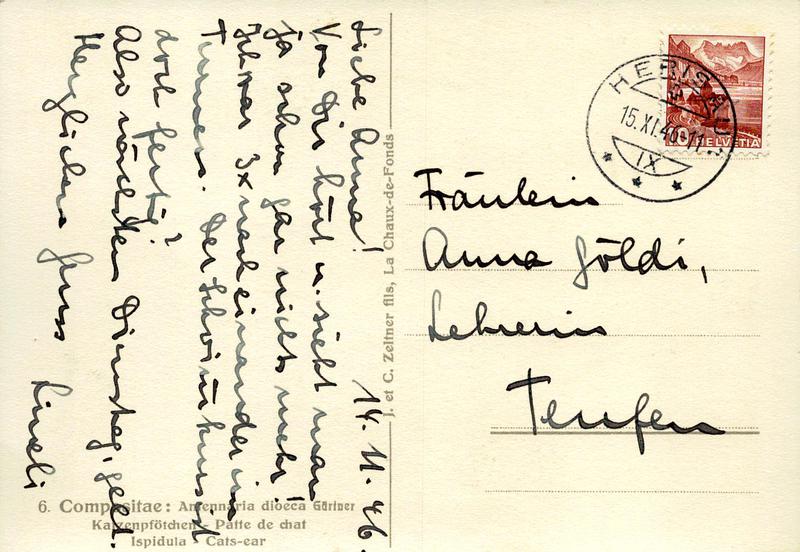 14. 11. 46.
Liebe Anna!
Von Dir hört u. sieht man
ja schon gar nichts mehr!
Ich war 3x nacheinander im
Turnen. Der Schwimmkurs ist
doch fertig?
Also nächsten Dienstag, gelt.
Herzlichen Gruss
Lineli
J. et C. Zeltner fils, La Chaux-de-Fonds
6. Compositae: Antennaria dioeca Gärtner
Katzenpfötchen - Patte de chat
Ispidula - Cats-ear
HERISAU
15.XI.46-11
IX
10 HELVETIA
Fräulein
Anna Göldi,
Lehrerin
Teufen